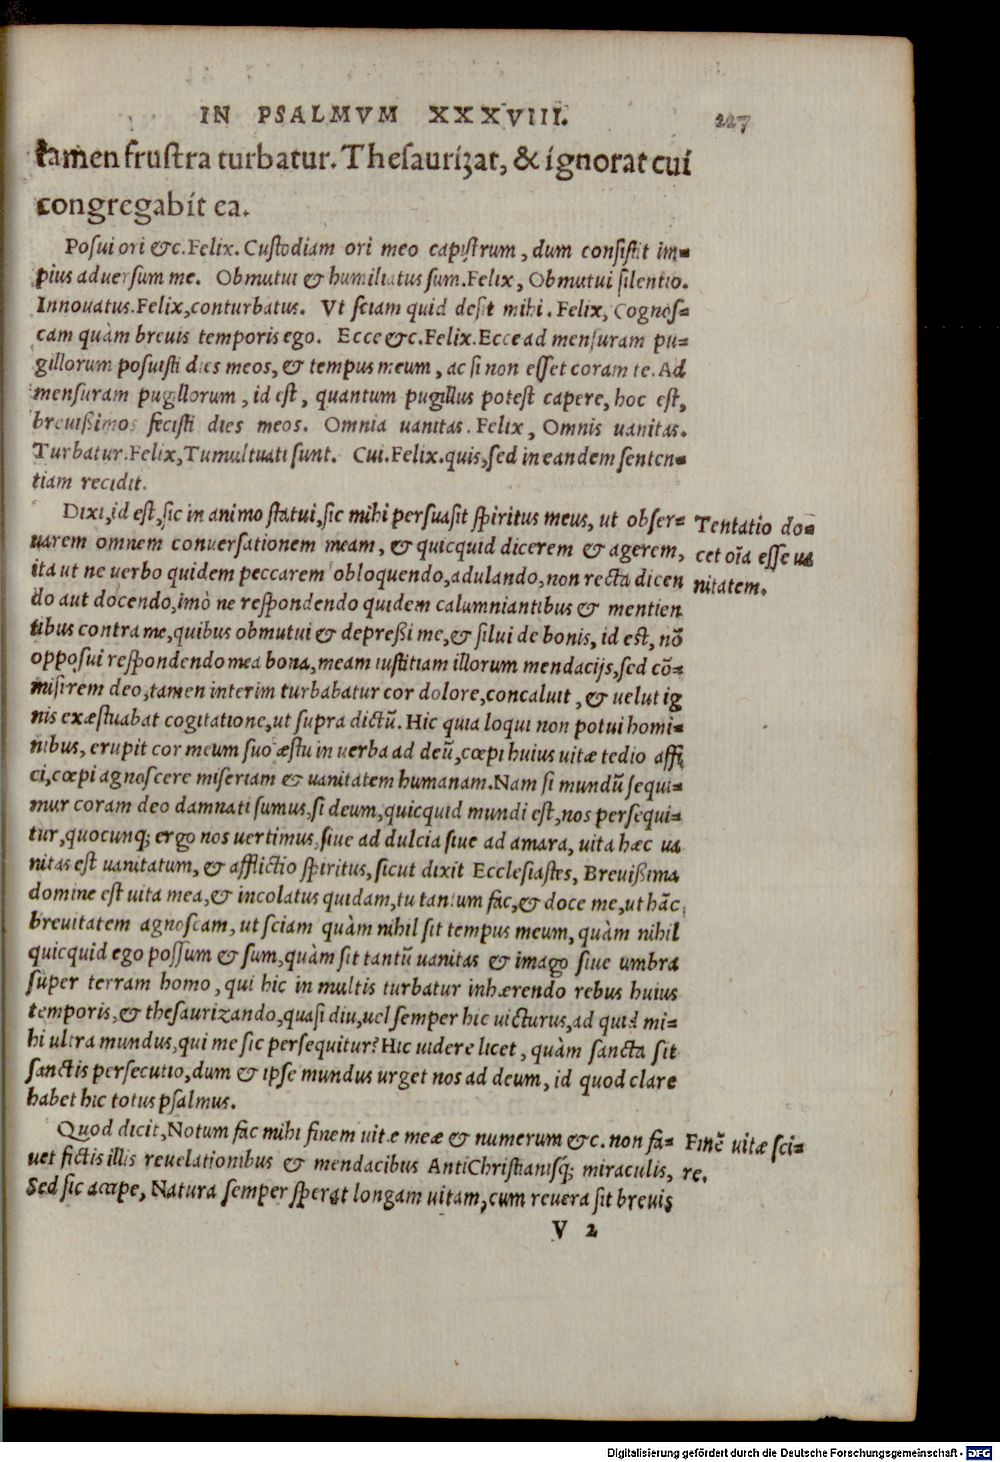 IN PSALMVM XXXVIII. 227
tamen frustra turbatur. Thesaurizat, & ignorat cui
congregabit ea.
Posui ori &c. Felix. Custodiam ori meo capistrum, dum consistit im=
pius aduersum me. Obmutui & humiliatus sum. Felix, Obmutui silentio.
Innouatus. Felix, conturbatus. Vt sciam quid desit mihi. Felix, Cognos=
cam quàm breuis temporis ego. Ecce &c. Felix. Ecce ad mensuram pu=
gillorum posuisti dies meos, & tempus meum, ac si non esset coram te. Ad
mensuram pugillorum, id est, quantum pugillus potest capere, hoc est,
breuißimos fecisti dies meos. Omnia uanitas. Felix, Omnis uanitas.
Turbatur. Felix, Tumultuati sunt. Cui. Felix. quis, sed in eandem senten=
tiam recidit.
Dixi, id est, sic in animo statui, sic mihi persuasit spiritus meus, ut obser=
uarem omnem conuersationem meam, & quicquid dicerem & agerem,
ita ut ne uerbo quidem peccarem obloquendo, adulando, non recta dicen
do aut docendo, imò ne respondendo quidem calumniantibus & mentien
tibus contra me, quibus obmutui & depreßi me, & silui de bonis, id est, nõ
opposui respondendo mea bona, meam iustitiam illorum mendacijs, sed cõ=
misi rem deo, tamen interim turbabatur cor dolore, concaluit, & uelut ig
nis exæstuabat cogitatione, ut supra dictũ. Hic quia loqui non potui homi=
nibus, erupit cor meum suo æstu in uerba ad deũ, cœpi huius uitæ tedio affi
ci, cœpi agnoscere miseriam & uanitatem humanam. Nam si mundũ sequi=
mur coram deo damnati sumus, si deum, quicquid mundi est, nos persequi=
tur, quocunq; ergo nos uertimus, siue ad dulcia siue ad amara, uita hæc ua
nitas est uanitatum, & afflictio spiritus, sicut dixit Ecclesiastes, Breuißima
domine est uita mea, & incolatus quidam, tu tantum fac, & doce me, ut hãc
breuitatem agnoscam, ut sciam quàm nihil sit tempus meum, quàm nihil
quicquid ego possum & sum, quàm sit tantũ uanitas & imago siue umbra
super terram homo, qui hic in multis turbatur inhærendo rebus huius
temporis, & thesaurizando, quasi diu, uel semper hic uicturus, ad quid mi=
hi ultra mundus, qui me sic persequitur? Hic uidere licet, quàm sancta sit
sanctis persecutio, dum & ipse mundus urget nos ad deum, id quod clare
habet hic totus psalmus.
Tentatio do=
cet oĩa esse ua
nitatem.
Quod dicit, Notum fac mihi finem uitæ meæ & numerum &c. non fa=
uet fictis illis reuelationibus & mendacibus AntiChristianisq; miraculis,
Sed sic accipe, Natura semper sperat longam uitam, cum reuera sit breuis
Finẽ uitæ sci=
re.
V 2
Digitalisierung gefördert durch die Deutsche Forschungsgemeinschaft - DFG